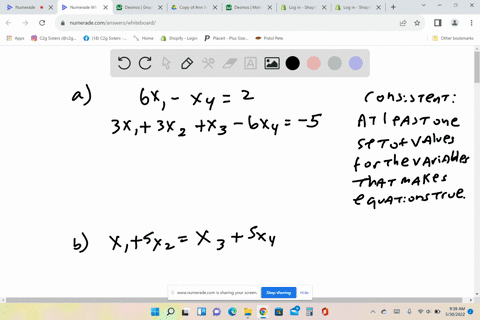 Numerade
Numerade Wh
Desmos | Grap
Copy of Ann M
Desmos | Mat
Log in - Shopif
Log in - Shopif
numerade.com/answers/whiteboard/
C2g Sisters (@c2g...
(18) C2g Sisters -...
Home
Shopify - Login
Placeit - Plus Size...
PrintOut Designer
Other bookmarks
a) 6x₁ - x₄ = 2
3x₁ + 3x₂ + x₃ - 6x₄ = -5
consistent:
At least one
set of values
for the variables
that makes
equations true.
b) x₁ + 5x₂ = x₃ + 5x₄
www.numerade.com is sharing your screen.
Stop sharing
Hide
9:39 AM
1/30/2022